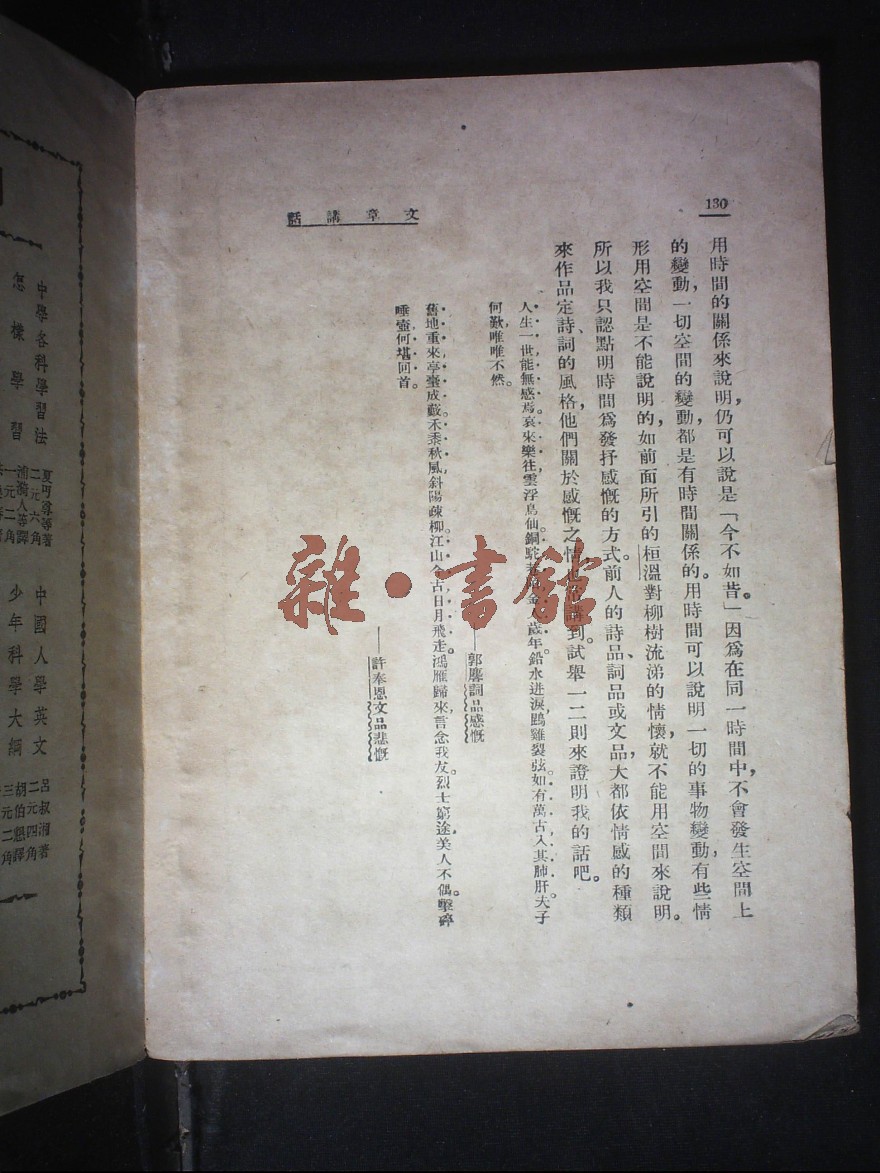 130
文章講話
用時間的關係來說明,仍可以說是「今不如昔。」因為在同一時間中,不會發生空間上
的變動,一切空間的變動,都是有時間關係的。用時間可以說明一切的事物變動,有些情
形用空間是不能說明的,如前面所引的桓溫對柳樹流涕的情懷,就不能用空間來說明。
所以我只認點明時間爲發抒感慨的方式。前人的詩品、詞品或文品,大都依情感的種類
來作品定詩、詞的風格,他們關於感慨之情講到。試舉一二則來證明我的話吧。
人生一世,能無感焉。哀來樂往,雲浮鳥仙。銅駝金人歲年。鉛水迸淚,鵾雞裂弦。如有萬古,入其肺肝。夫子
何歎,唯唯不然。
——郭麐詞品感慨
舊地重來,亭臺成藏。禾黍秋風,斜陽疎柳。江山今古,日月飛走。鴻雁歸來,言念我友。烈士窮途,美人不偶。擊碎
唾壺,何堪回首。
——許奉恩文品悲慨
雜·書館
中學各科學習法
夏丏尊等著
二元六角
怎樣學習
一元二角
中國人學英文
呂叔湘著
二元四角
少年科學大綱
胡伯懇譯
三元二角